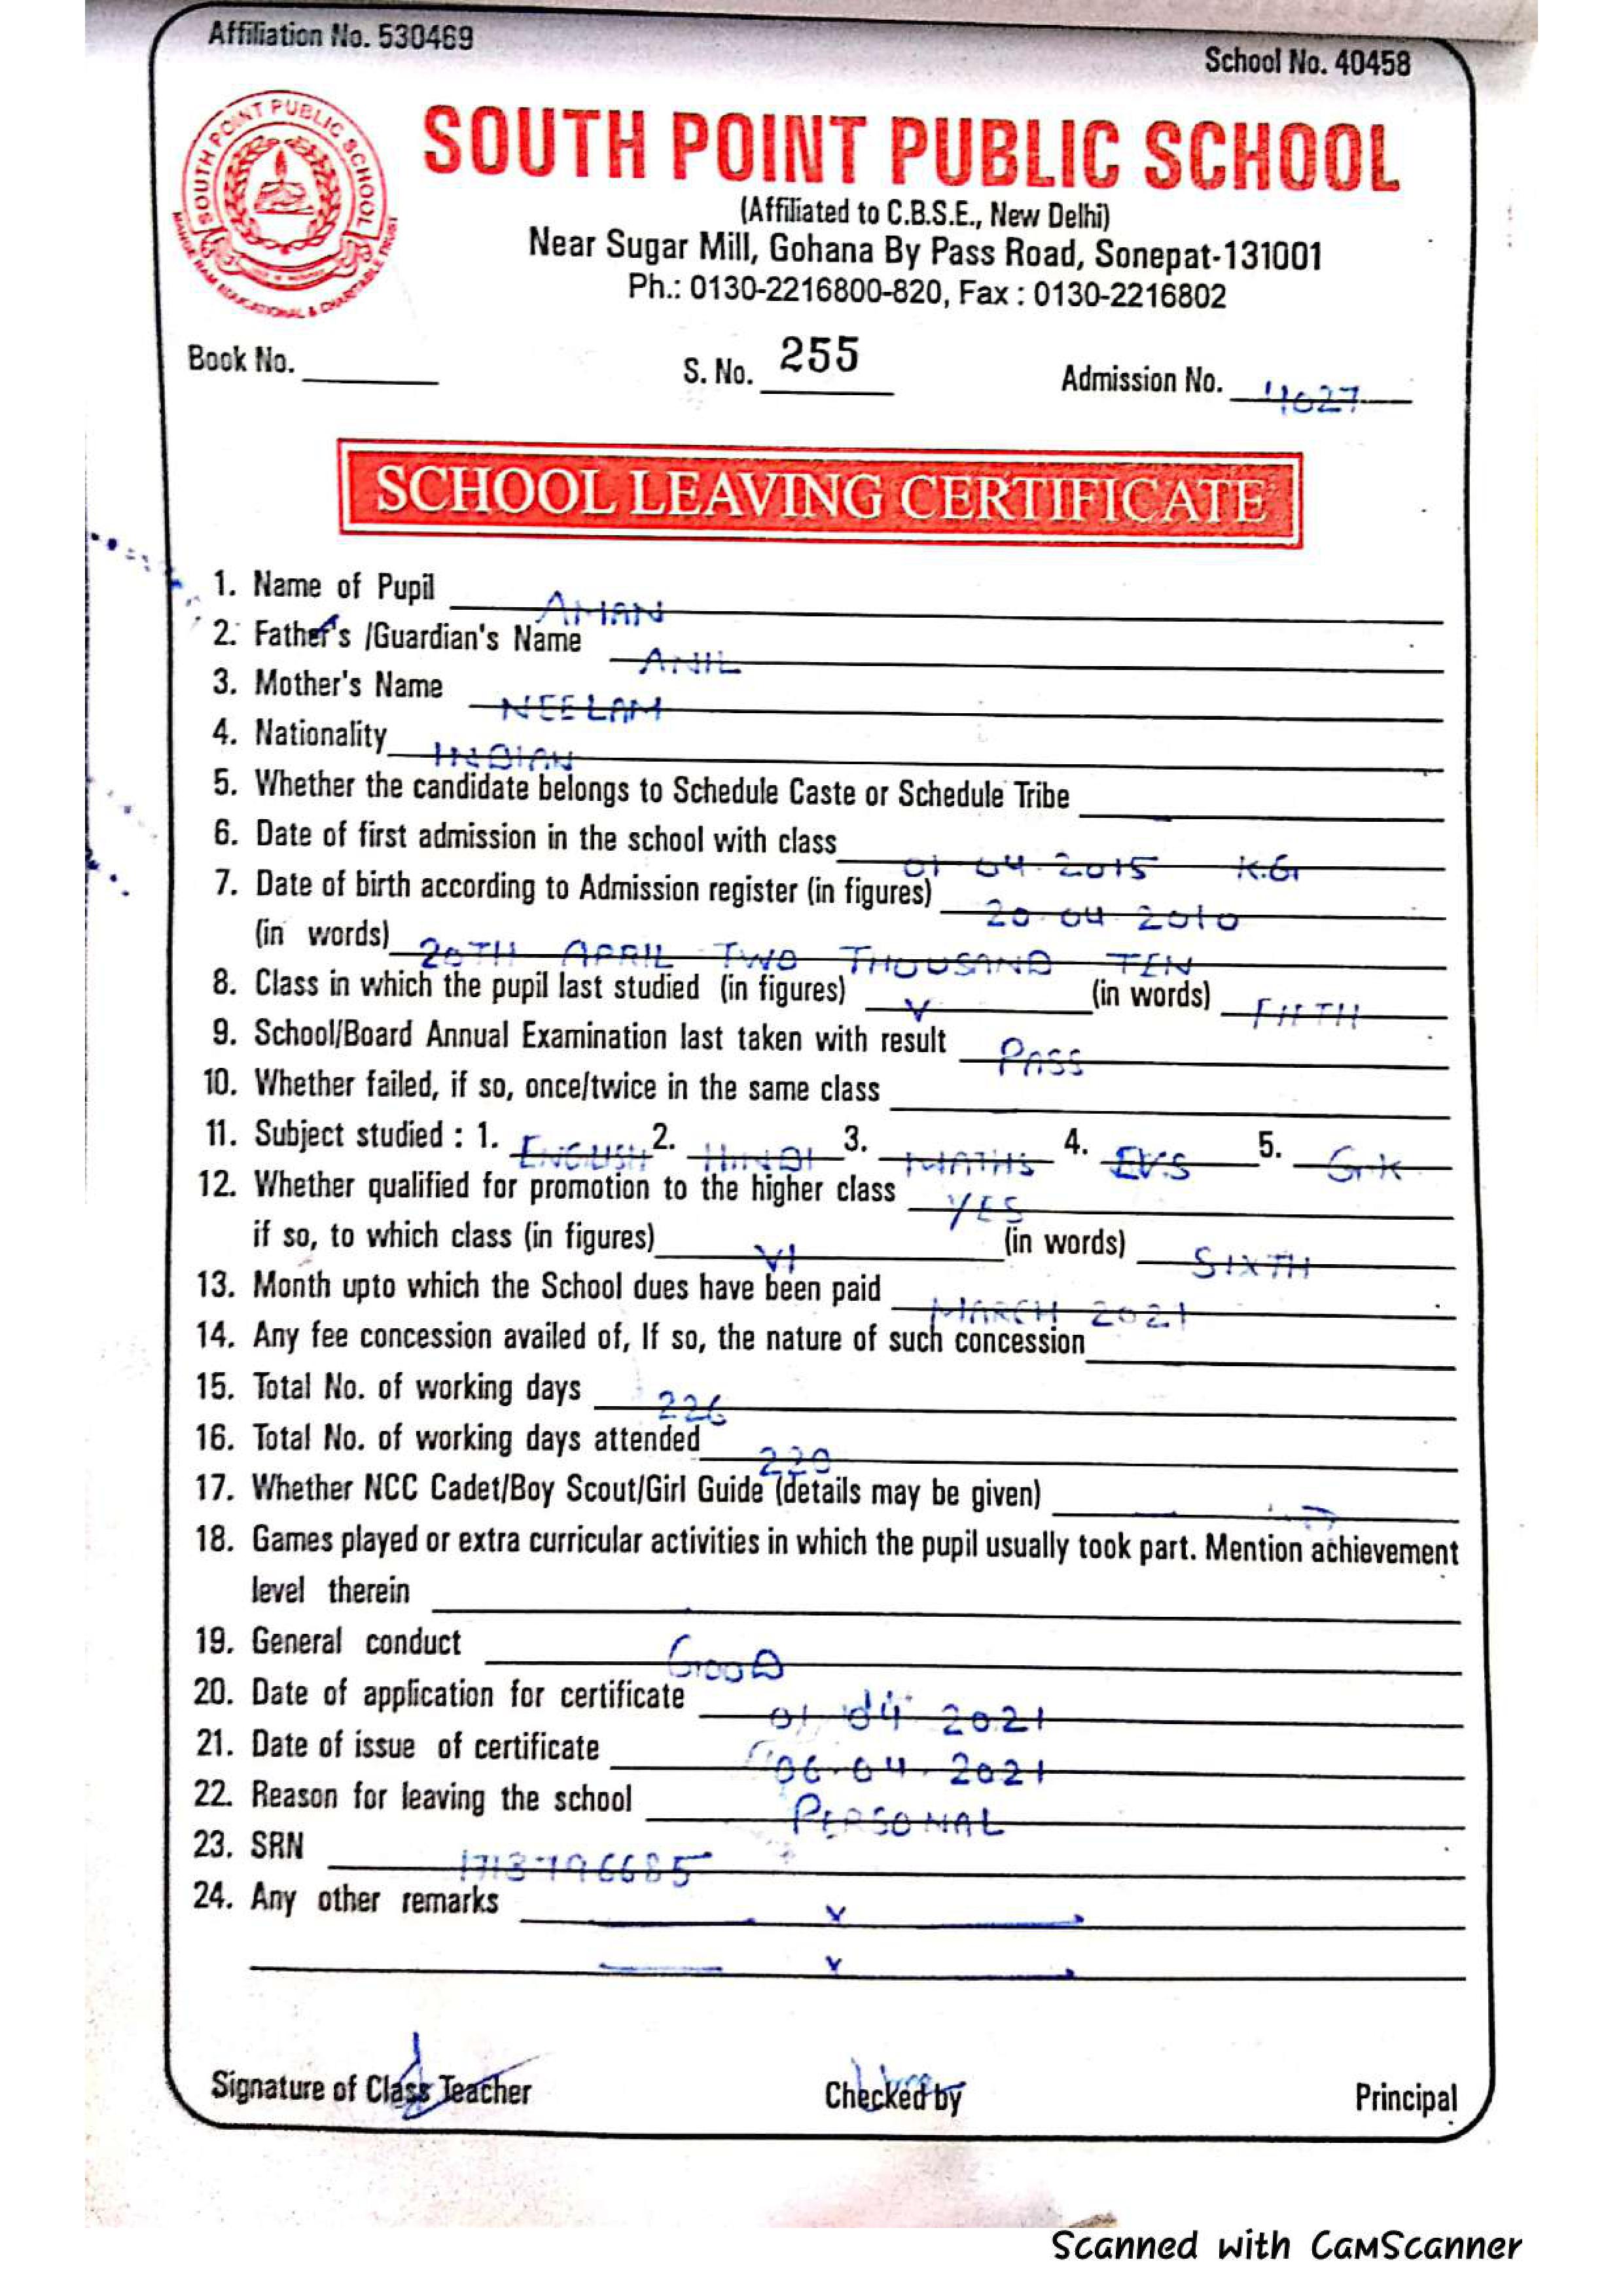 Affiliation No. 530469
School No. 40458
SOUTH POINT PUBLIC SCHOOL
SOUTH POINT PUBLIC SCHOOL
(Affiliated to C.B.S.E., New Delhi)
Near Sugar Mill, Gohana By Pass Road, Sonepat-131001
MANGE RAM EDUCATIONAL & CHARITABLE TRUST
Ph.: 0130-2216800-820, Fax : 0130-2216802
Book No. S. No. 255 Admission No. 4027
SCHOOL LEAVING CERTIFICATE
1. Name of Pupil AMAN
2. Father's /Guardian's Name ANIL
3. Mother's Name NEELAM
4. Nationality INDIAN
5. Whether the candidate belongs to Schedule Caste or Schedule Tribe
6. Date of first admission in the school with class 01 04 2015 K.G
7. Date of birth according to Admission register (in figures) 20 04 2010
(in words) 20TH APRIL TWO THOUSAND TEN
8. Class in which the pupil last studied (in figures) V (in words) FIFTH
9. School/Board Annual Examination last taken with result PASS
10. Whether failed, if so, once/twice in the same class
11. Subject studied : 1. ENGLISH 2. HINDI 3. MATHS 4. EVS 5. G.K
12. Whether qualified for promotion to the higher class YES
if so, to which class (in figures) VI (in words) SIXTH
13. Month upto which the School dues have been paid MARCH 2021
14. Any fee concession availed of, If so, the nature of such concession
15. Total No. of working days 226
16. Total No. of working days attended 220
17. Whether NCC Cadet/Boy Scout/Girl Guide (details may be given)
18. Games played or extra curricular activities in which the pupil usually took part. Mention achievement
level therein
19. General conduct GOOD
20. Date of application for certificate 01 04 2021
21. Date of issue of certificate 06-04-2021
22. Reason for leaving the school PERSONAL
23. SRN 1713796685
24. Any other remarks x
x
Signature of Class Teacher Checked by Principal
Scanned with CamScanner